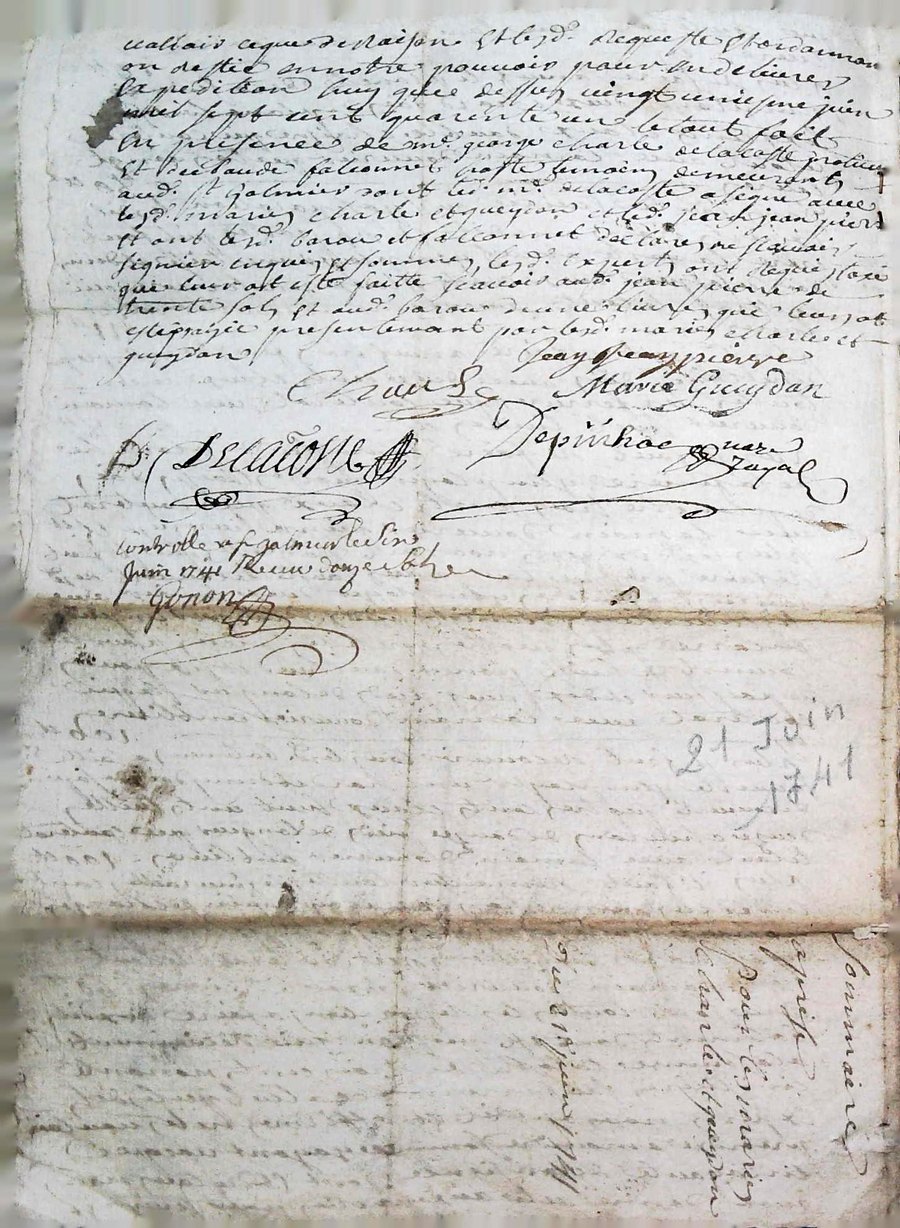 ce que de raison Et lesd. Requeste Et ordonnan
en notre pouvoir pour en delivrer
Expedition huy que dessus vingt unieme juin
mil sept cent quarente un le tout fait
En presence de me. george charle delacoste praticien
Et de claude falconnet hoste temoins demeurants
aud. st galmier dont led. me. delacoste a signé avec
lesd. mariés charle et gueydon et led. jean jean pierre
Et ont lesd. barou et falconnet déclarés ne sçavoir
signer enquis et sommés, lesd. experts ont requis taxe
que leur ont esté faitte sçavoir aud. jean pierre de
trente sols et aud. barou d'une livre que leur ont
esté payée presentemant par lesd. mariés charle et
gueydon
Jean Jean pierre
Charle Marie Gueydon
Delacoste Depuihac
controllé a st galmier le
Juin 1741 Receu douze sols
Gonon
21 Juin
1741
Sommaire
aprise
Pour les mariés
charle et gueydon
Du 21e juin 1741